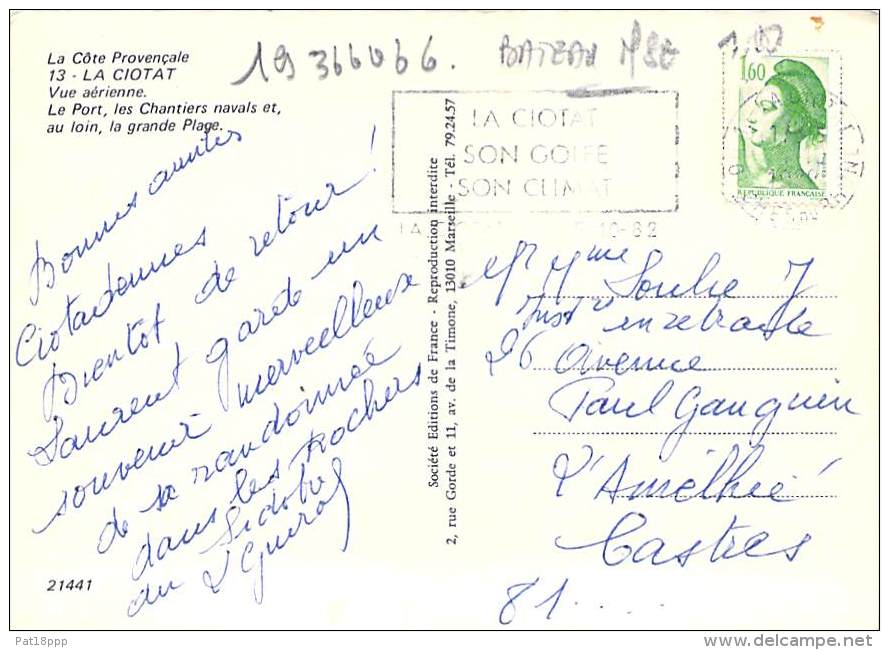 La Côte Provençale
13 - LA CIOTAT
Vue aérienne.
Le Port, les Chantiers navals et,
au loin, la grande Plage.
19366066. BATEAU
1,60
REPUBLIQUE FRANÇAISE
LA CIOTAT
SON GOLFE
SON CLIMAT
10-82
Bonnes amitiés
Ciotadennes
Bientot de retour !
Laurent garde un
souvenir merveilleuse
de sa randonnée
dans les rochers
du Sidobre
Société Editions de France - Reproduction interdite
2, rue Gorde et 11, av. de la Timone, 13010 Marseille - Tél. 79.24.57
Mr Mme Soulie J
en retraite
26 Avenue
Paul Gauguin
Castres
81....
21441
Pat18ppp
delcampe.net